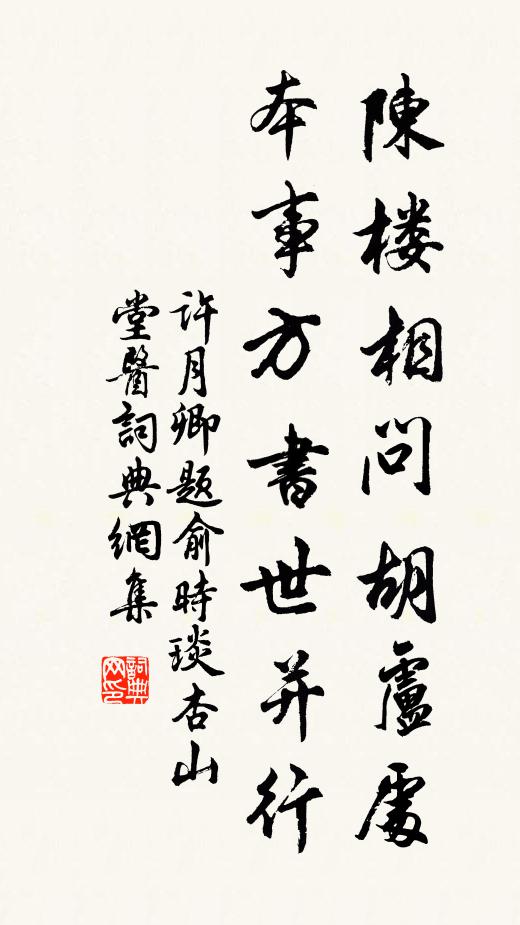 陳楼相问胡盧處
本事方書世并行
许月卿题俞時琰杏山
堂醫詞典網集
詞典网印